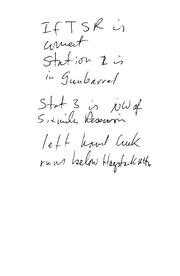 If T S R is
correct
Station 2 is
in Gunbarrel
Stat 3 is NW of
Six mile Reservoir
left hand Creek
runs below Haystack Mtn